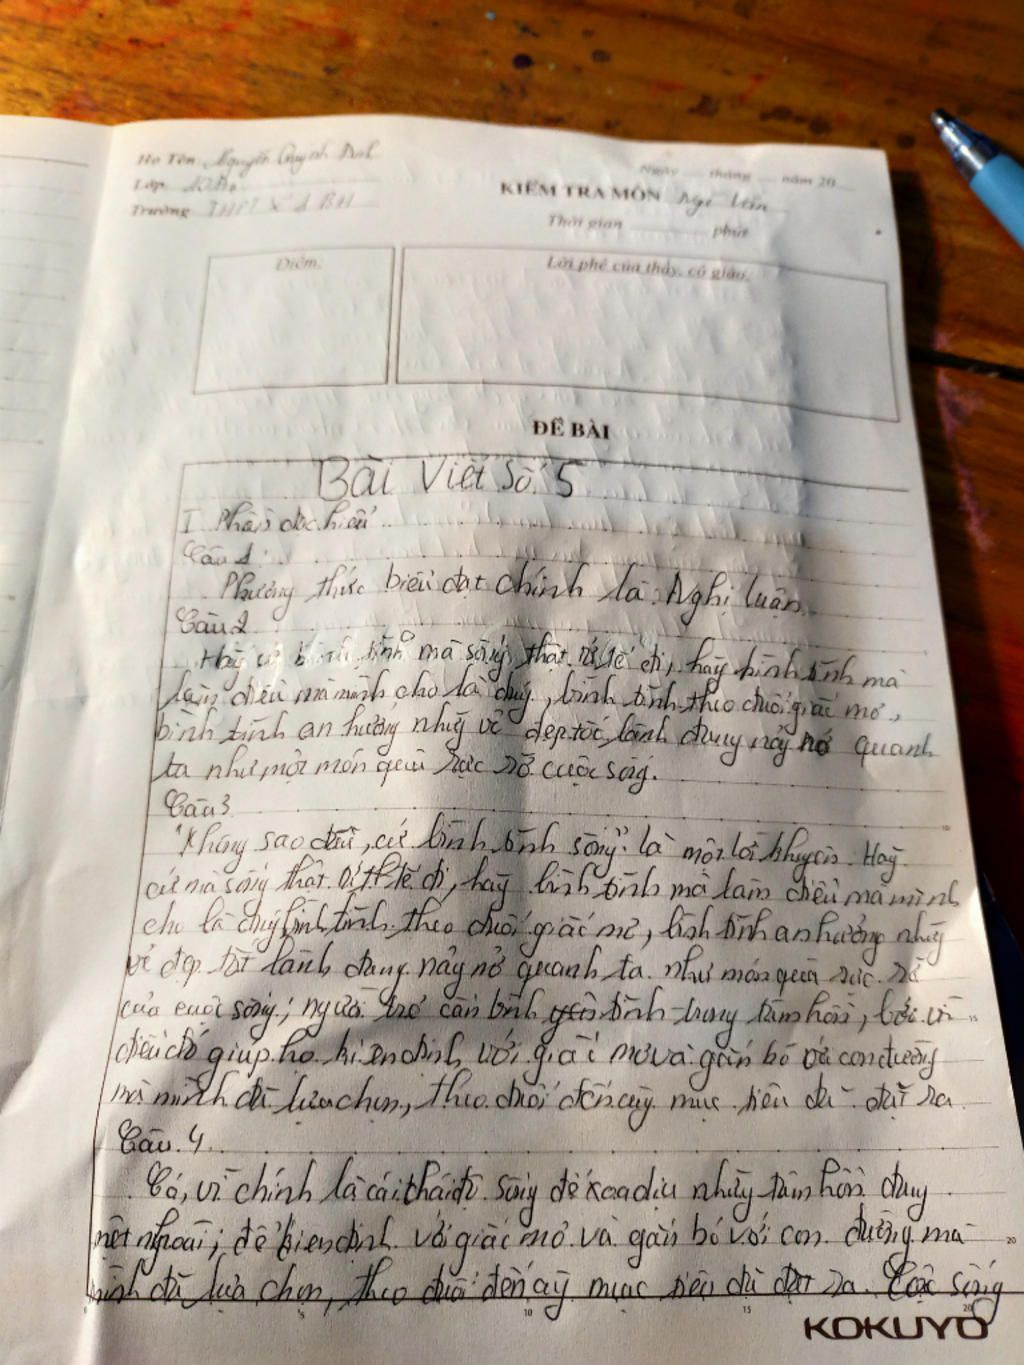 Họ Tên Nguyễn Quỳnh
Lớp
Trường THPT
Ngày tháng năm 20
KIỂM TRA MÔN Ngữ Văn
Thời gian phút
Điểm.
Lời phê của thầy, cô giáo.
ĐỀ BÀI
Bài Viết Số 5
I Phần đọc hiểu
Câu 1:
Phương thức biểu đạt chính là: Nghị luận.
Câu 2
Hãy cứ bình tĩnh mà sống thật tử tế đi, hãy bình tĩnh mà
làm điều mà mình cho là đúng, bình tĩnh theo đuổi giấc mơ,
bình tĩnh an hưởng những vẻ đẹp tốt lành đang nảy nở quanh
ta như một món quà rực rỡ cuộc sống.
Câu 3
"Không sao đâu, cứ bình tĩnh sống" là một lời khuyên. Hãy
cứ mà sống thật tử tế đi, hãy bình tĩnh mà làm điều mà mình
cho là đúng bình tĩnh theo đuổi giấc mơ, bình tĩnh an hưởng những
vẻ đẹp tốt lành đang nảy nở quanh ta như món quà rực rỡ
của cuộc sống; người trẻ cần bình tĩnh trong tâm hồn, bởi vì
điều đó giúp họ kiên định với giấc mơ và gắn bó với con đường
mà mình đã lựa chọn, theo đuổi đến cùng mục tiêu đã đặt ra
Câu 4
Có, vì chính là cái thái độ sống để xoa dịu những tâm hồn đang
mệt nhoài; để kiên định với giấc mơ và gắn bó với con đường mà
mình đã lựa chọn, theo đuổi đến cùng mục tiêu đã đặt ra. Cuộc sống
KOKUYO